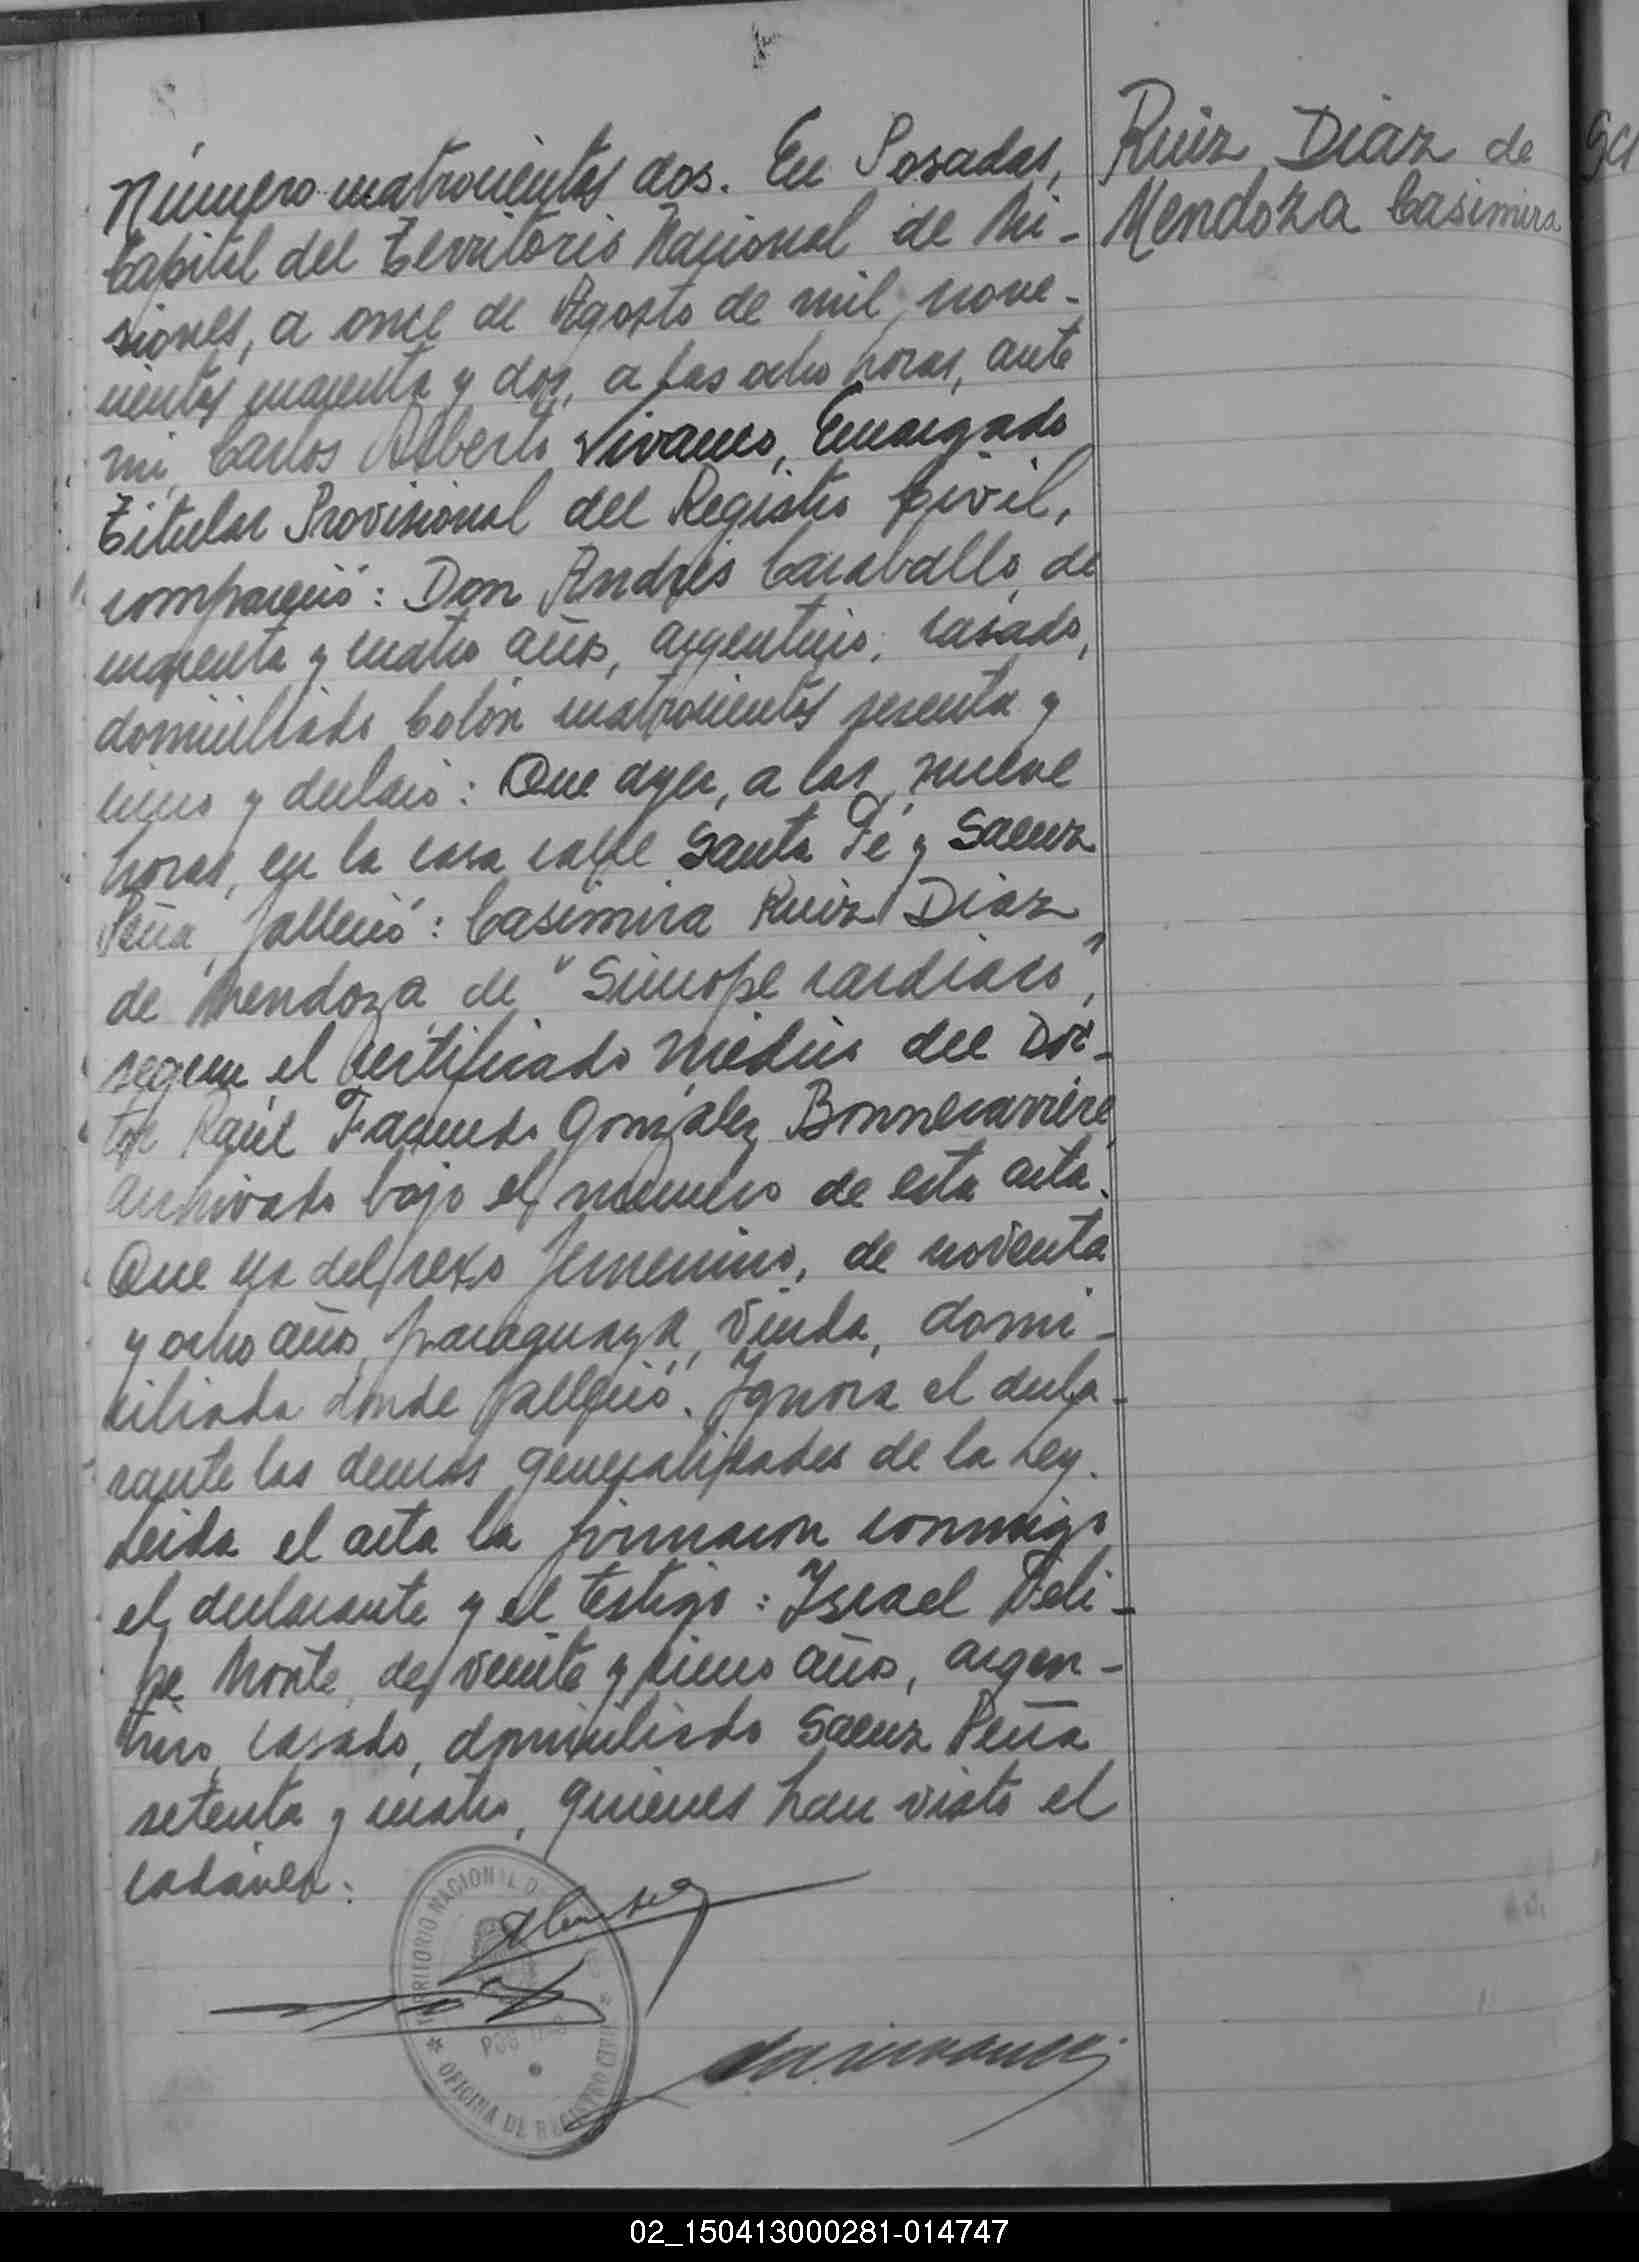 Número cuatrocientos dos. En Posadas,
Capital del Territorio Nacional de Mi-
siones, a once de Agosto de mil nove-
cientos cuarenta y dos, a las ocho horas, ante
mi, Carlos Alberto Vivanco, Encargado
Titular Provisional del Registro Civil,
compareció: Don Andrés Caraballo, de
cuarenta y cuatro años, argentino, casado,
domiciliado Colón cuatrocientos sesenta y
cinco y declaró: Que ayer, a las nueve
horas, en la casa calle Santa Fé y Saenz
Peña, falleció: Casimira Ruiz Diaz
de Mendoza de "Sincope cardiaco",
segun el certificado médico del Doc-
tor Raúl Facundo González Bonnecarrére,
archivado bajo el número de esta acta.
Que era del sexo femenino, de noventa
y ocho años, paraguaya, viuda, domi-
ciliada donde falleció. Ignora el decla-
rante las demas generalidades de la Ley.
Leida el acta la firmaron conmigo
el declarante y el testigo: Israel Feli-
pe Monte, de veinte y cinco años, argen-
tino, casado, domiciliado Saenz Peña
setenta y cuatro, quienes han visto el
cadáver.
Ruiz Diaz de
Mendoza Casimira
TERRITORIO NACIONAL D
POSADAS
OFICINA DE REGISTRO CIVIL
02_150413000281-014747